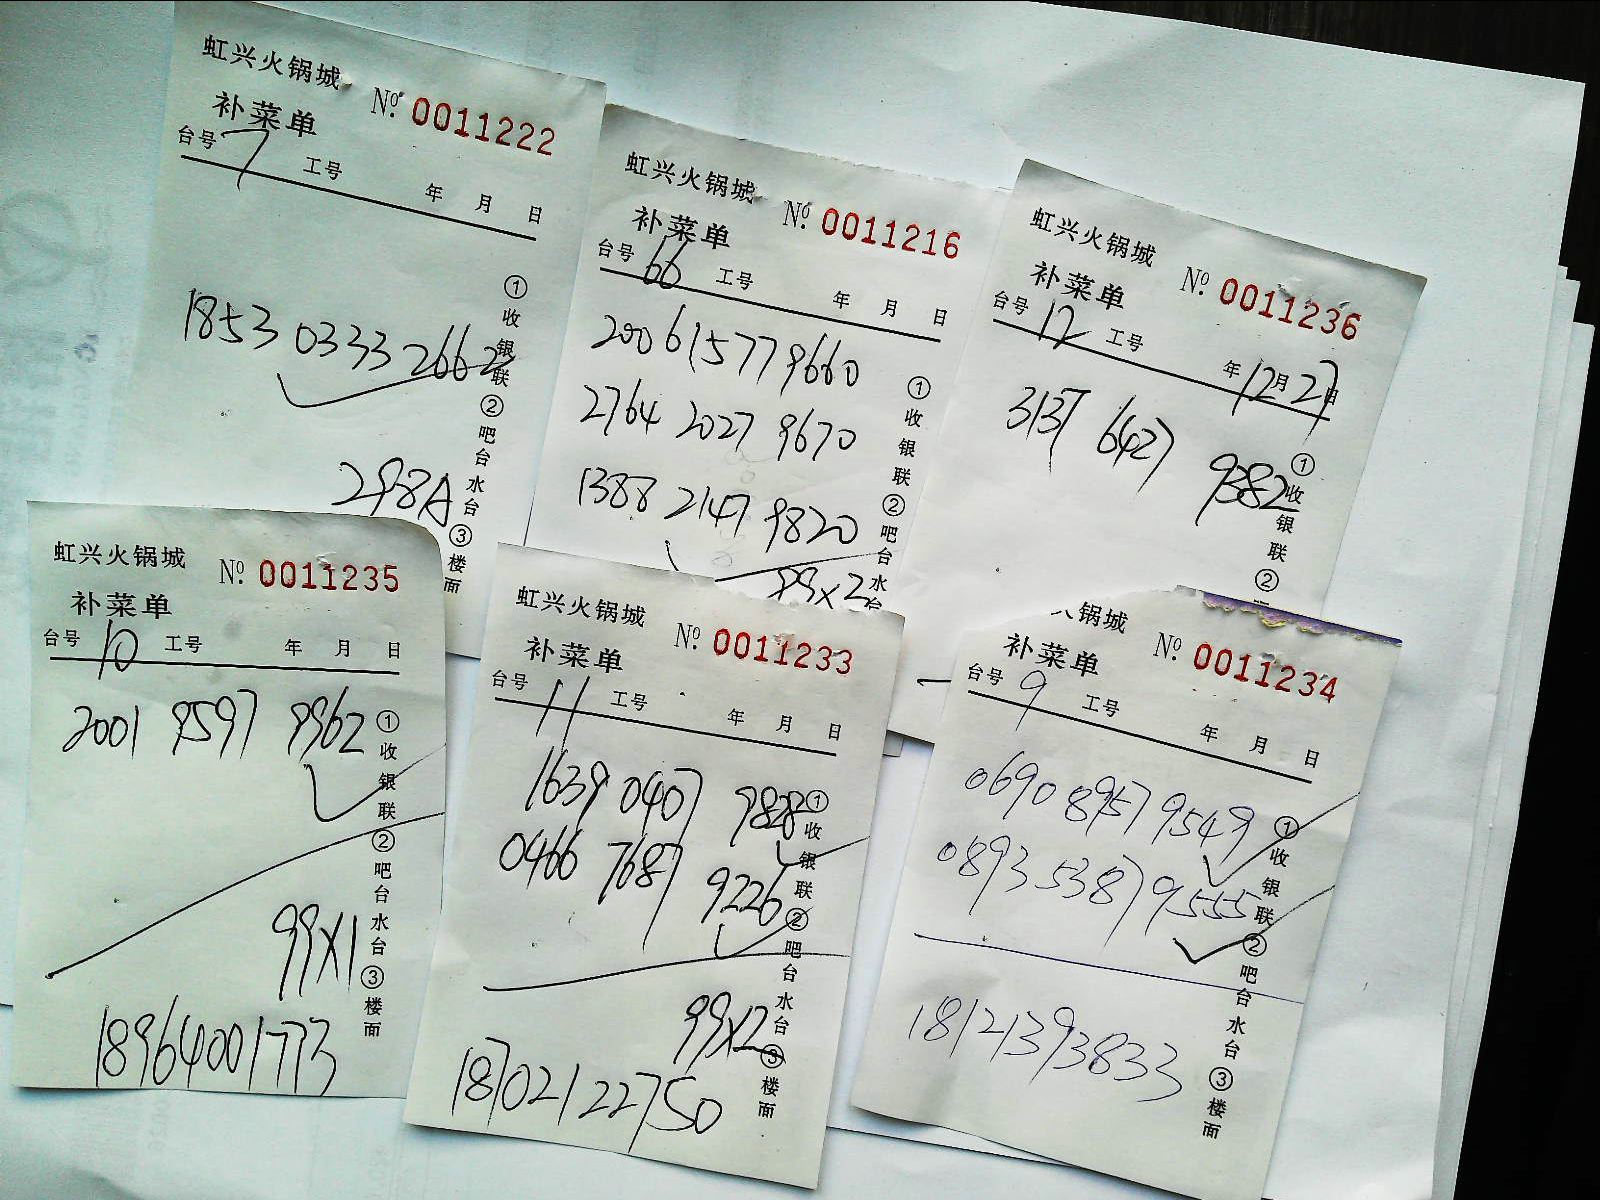 虹兴火锅城
补菜单 № 0011222
台号 7 工号 年 月 日
1853 0333 2662
298A
①收银联②吧台水台③楼面
虹兴火锅城
补菜单 № 0011216
台号 66 工号 年 月 日
2006 1577 9660
2764 2027 9670
1388 2147 9820
99×2
①收银联②吧台水台
虹兴火锅城
补菜单 № 0011236
台号 12 工号 年 12月 27日
3137 6427 9382
①收银联②
虹兴火锅城
补菜单 № 0011235
台号 10 工号 年 月 日
2001 9597 9962
99×1
18964001773
①收银联②吧台水台③楼面
虹兴火锅城
补菜单 № 0011233
台号 11 工号 年 月 日
1639 0407 9828
0466 7687 9226
99×2
18702122750
①收银联②吧台水台③楼面
火锅城
补菜单 № 0011234
台号 9 工号 年 月 日
0690 8957 9549
0893 5387 9555
18121393833
①收银联②吧台水台③楼面